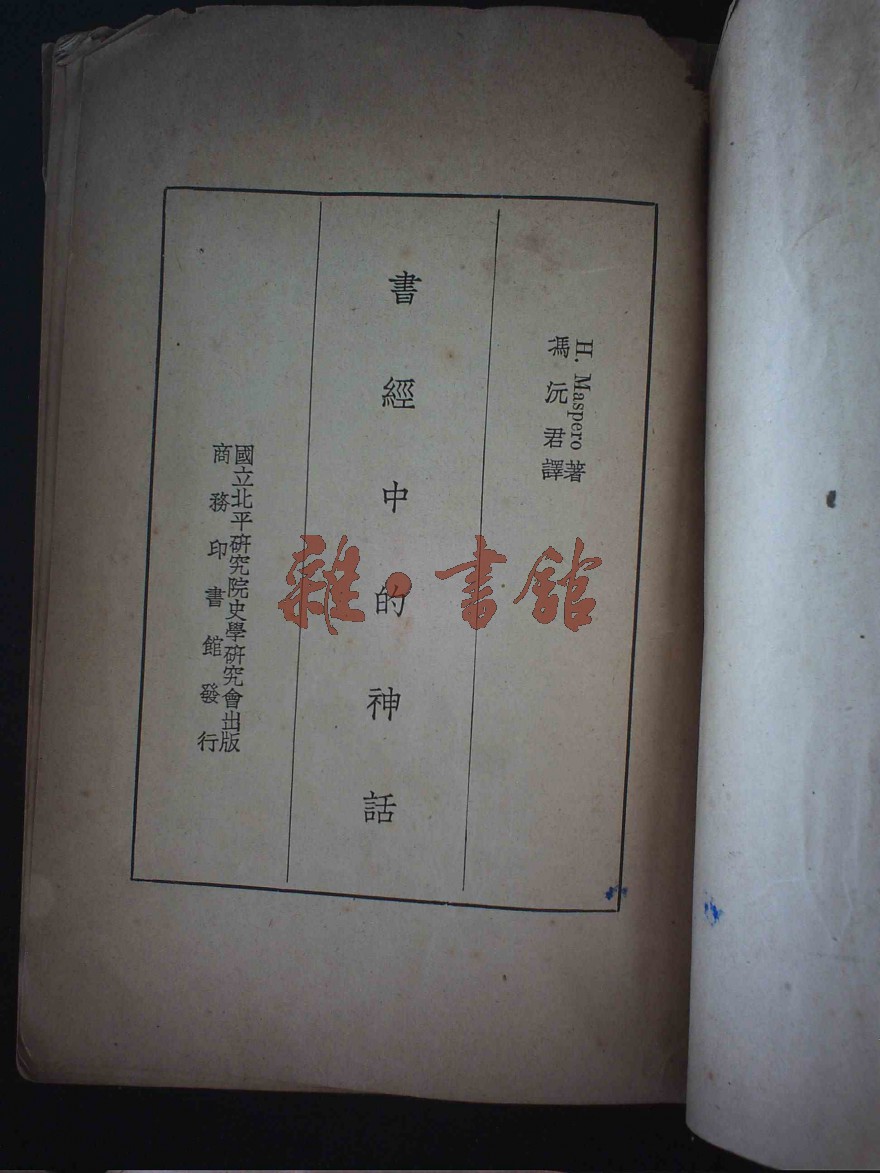 H. Maspero 著
馮沅君譯
書經中的神話
國立北平研究院史學研究會出版
商務印書館發行
雜·書館